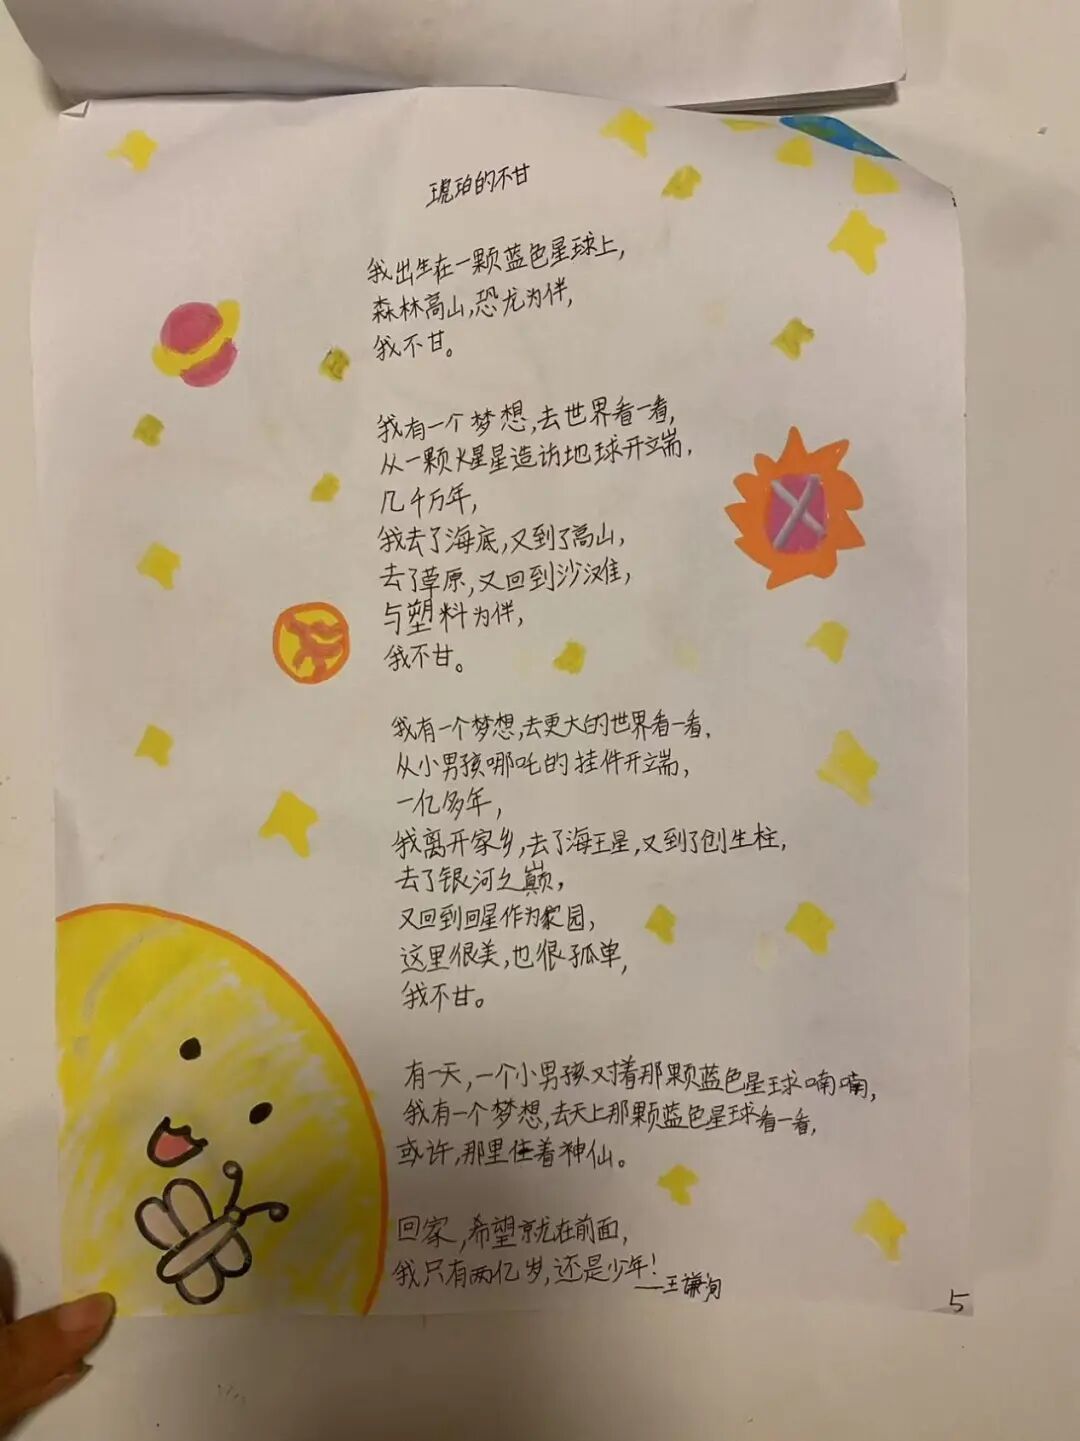 琥珀的不甘
我出生在一颗蓝色星球上,
森林高山,恐龙为伴,
我不甘。
我有一个梦想,去世界看一看,
从一颗火星星造访地球开端,
几千万年,
我去了海底,又到了高山,
去了草原,又回到沙滩,
与塑料为伴,
我不甘。
我有一个梦想,去更大的世界看一看,
从小男孩哪吒的挂件开端,
一亿多年,
我离开家乡,去了海王星,又到了创生柱,
去了银河之巅,
又回到回星作为家园,
这里很美,也很孤单,
我不甘。
有一天,一个小男孩对着那颗蓝色星球喃喃,
我有一个梦想,去天上那颗蓝色星球看一看,
或许,那里住着神仙。
回家,希望就在前面,
我只有两亿岁,还是少年!
——王谦洵
5